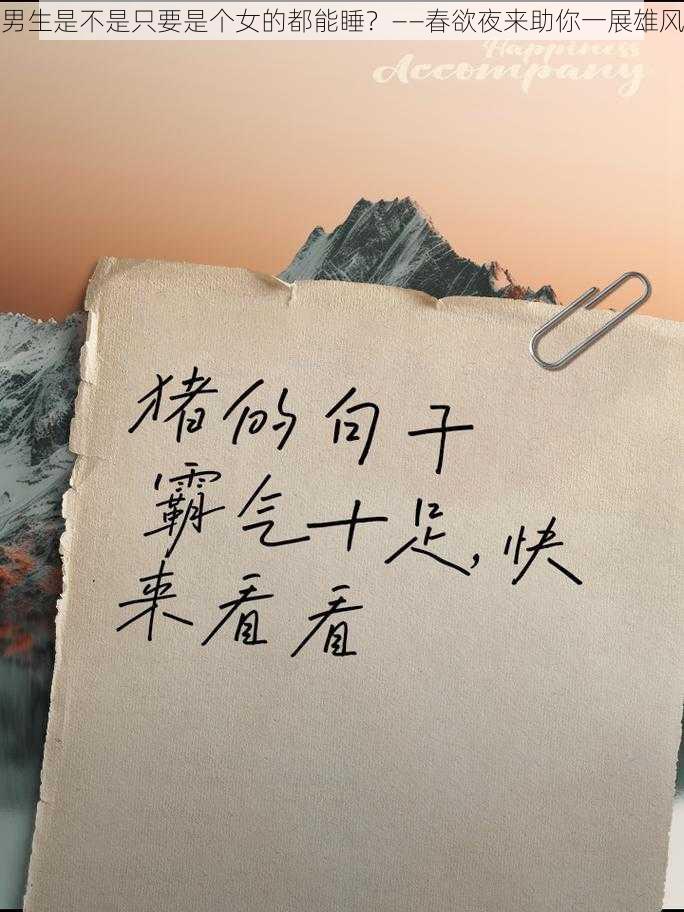 男生是不是只要是个女的都能睡？——春欲夜来助你一展雄风
Happiness
Accompany
猪的句子
霸气十足,快
来看看